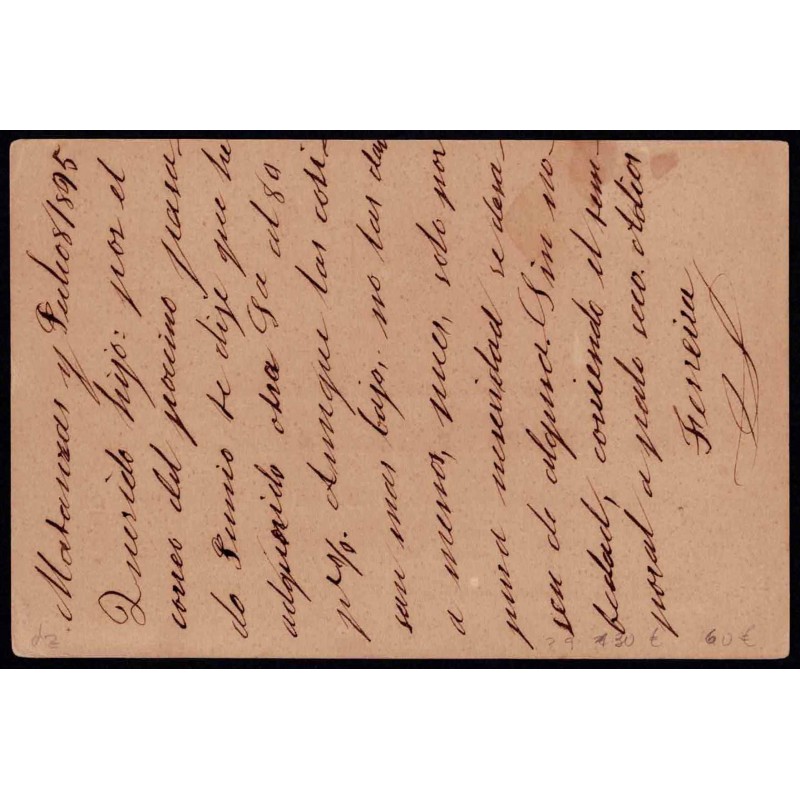 Matanzas y Julio 8/895
Querido hijo: por el
correo del procimo pasa-
do Junio te dije que he
adquirido otra Ga al 80
p%. Aunque las coti-
san mas bajo, no las dan
a menos, pues, solo por
pura nesecidad se desa-
sen de alguna. Sin no-
bedad, corriendo el tem-
poral a palo seco. Adios
Ferreira
130 € 60 €